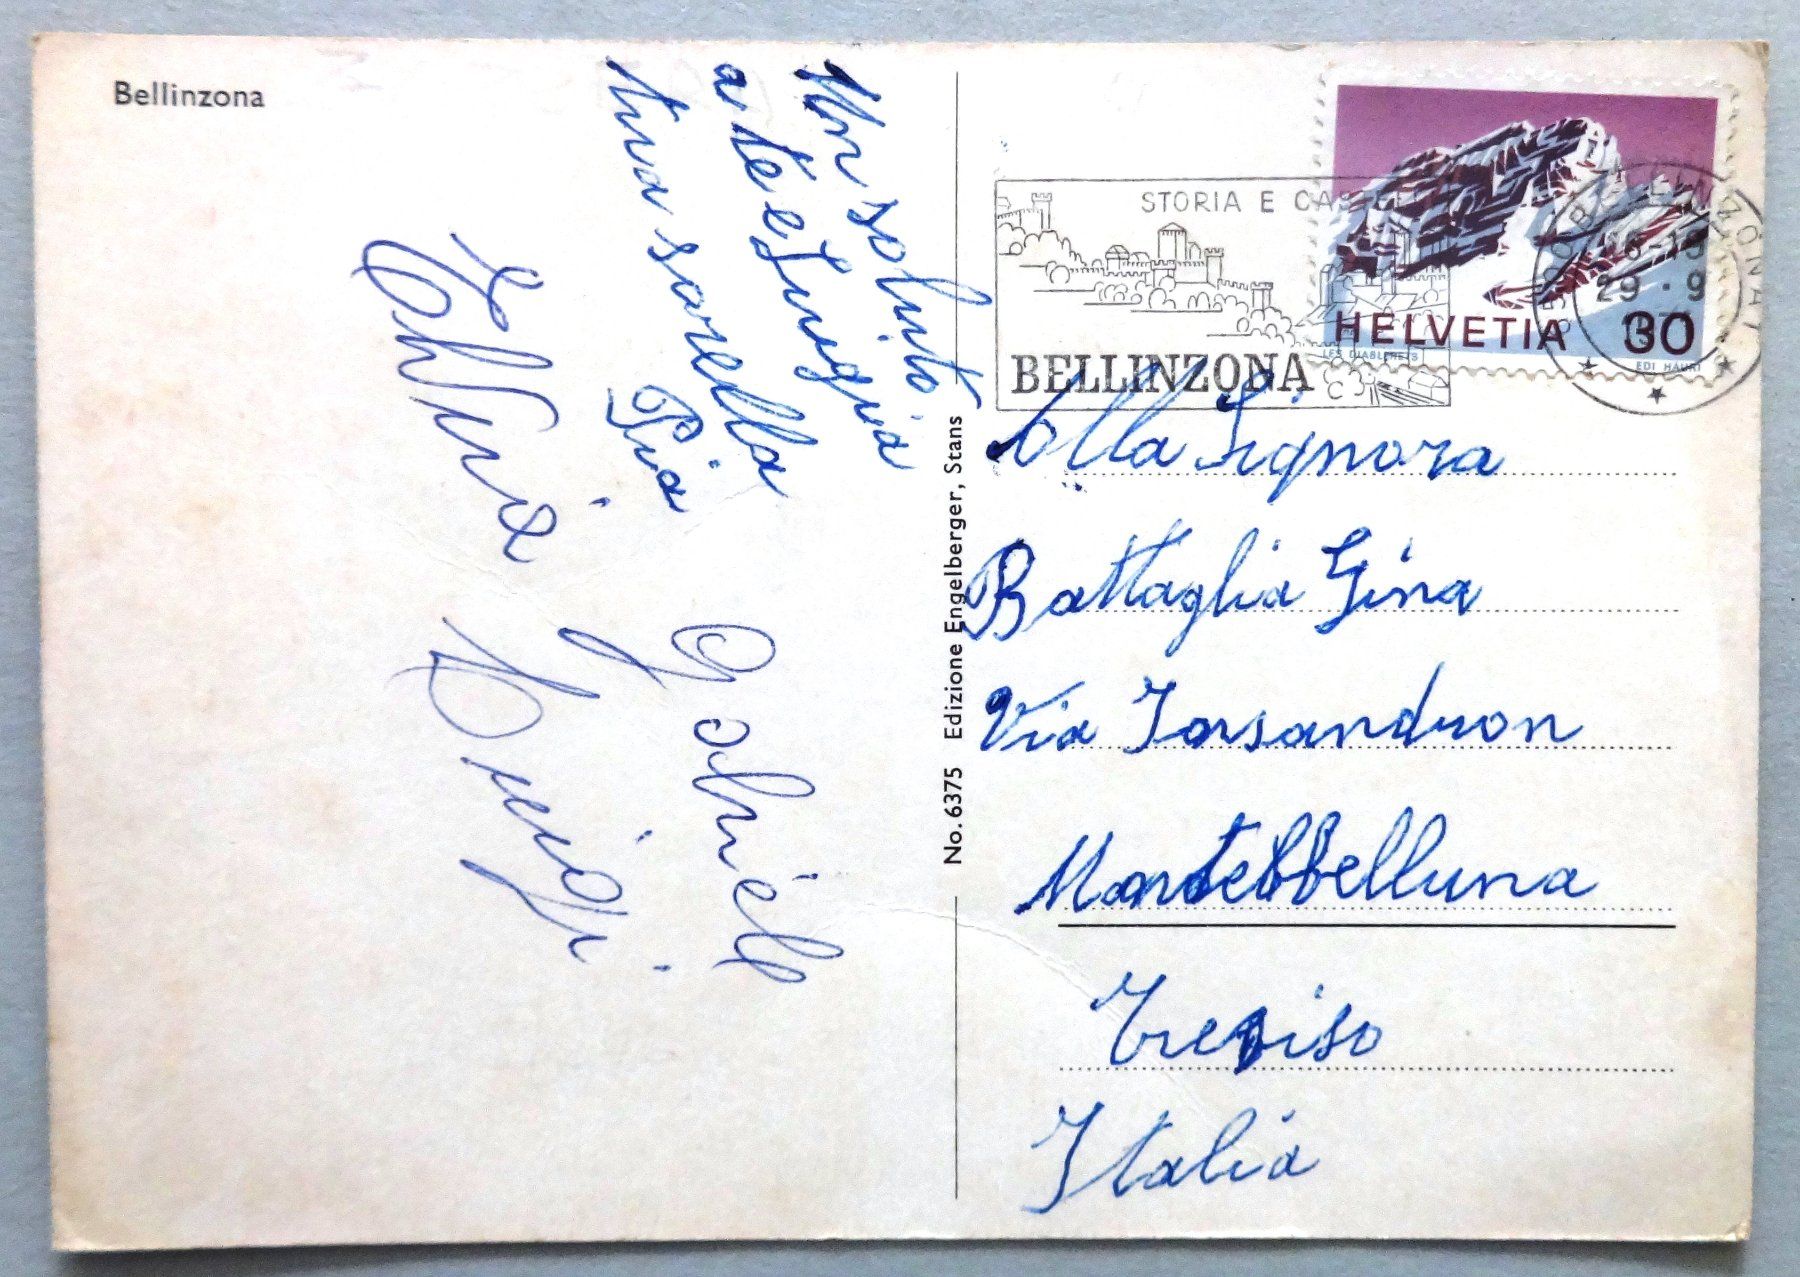 Bellinzona
Un saluto
a te e Luigia
tua sorella
Pia
Gabriele
Elvia
Luigi
No. 6375 Edizione Engelberger, Stans
STORIA E CASTELLI
BELLINZONA
HELVETIA 30
LES DIABLERETS
EDI HAURI
BELLINZONA 1
29.9
Alla Signora
Battaglia Gina
Via
Montebbelluna
Treviso
Italia